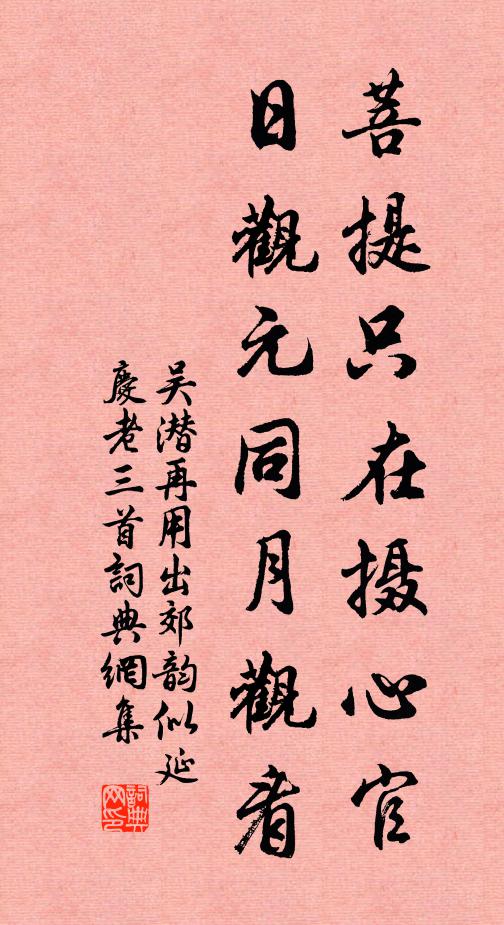 菩提只在摄心官
日觀元同月觀看
吴潜再用出郊韵似延
慶老三首詞典網集
詞典
网印